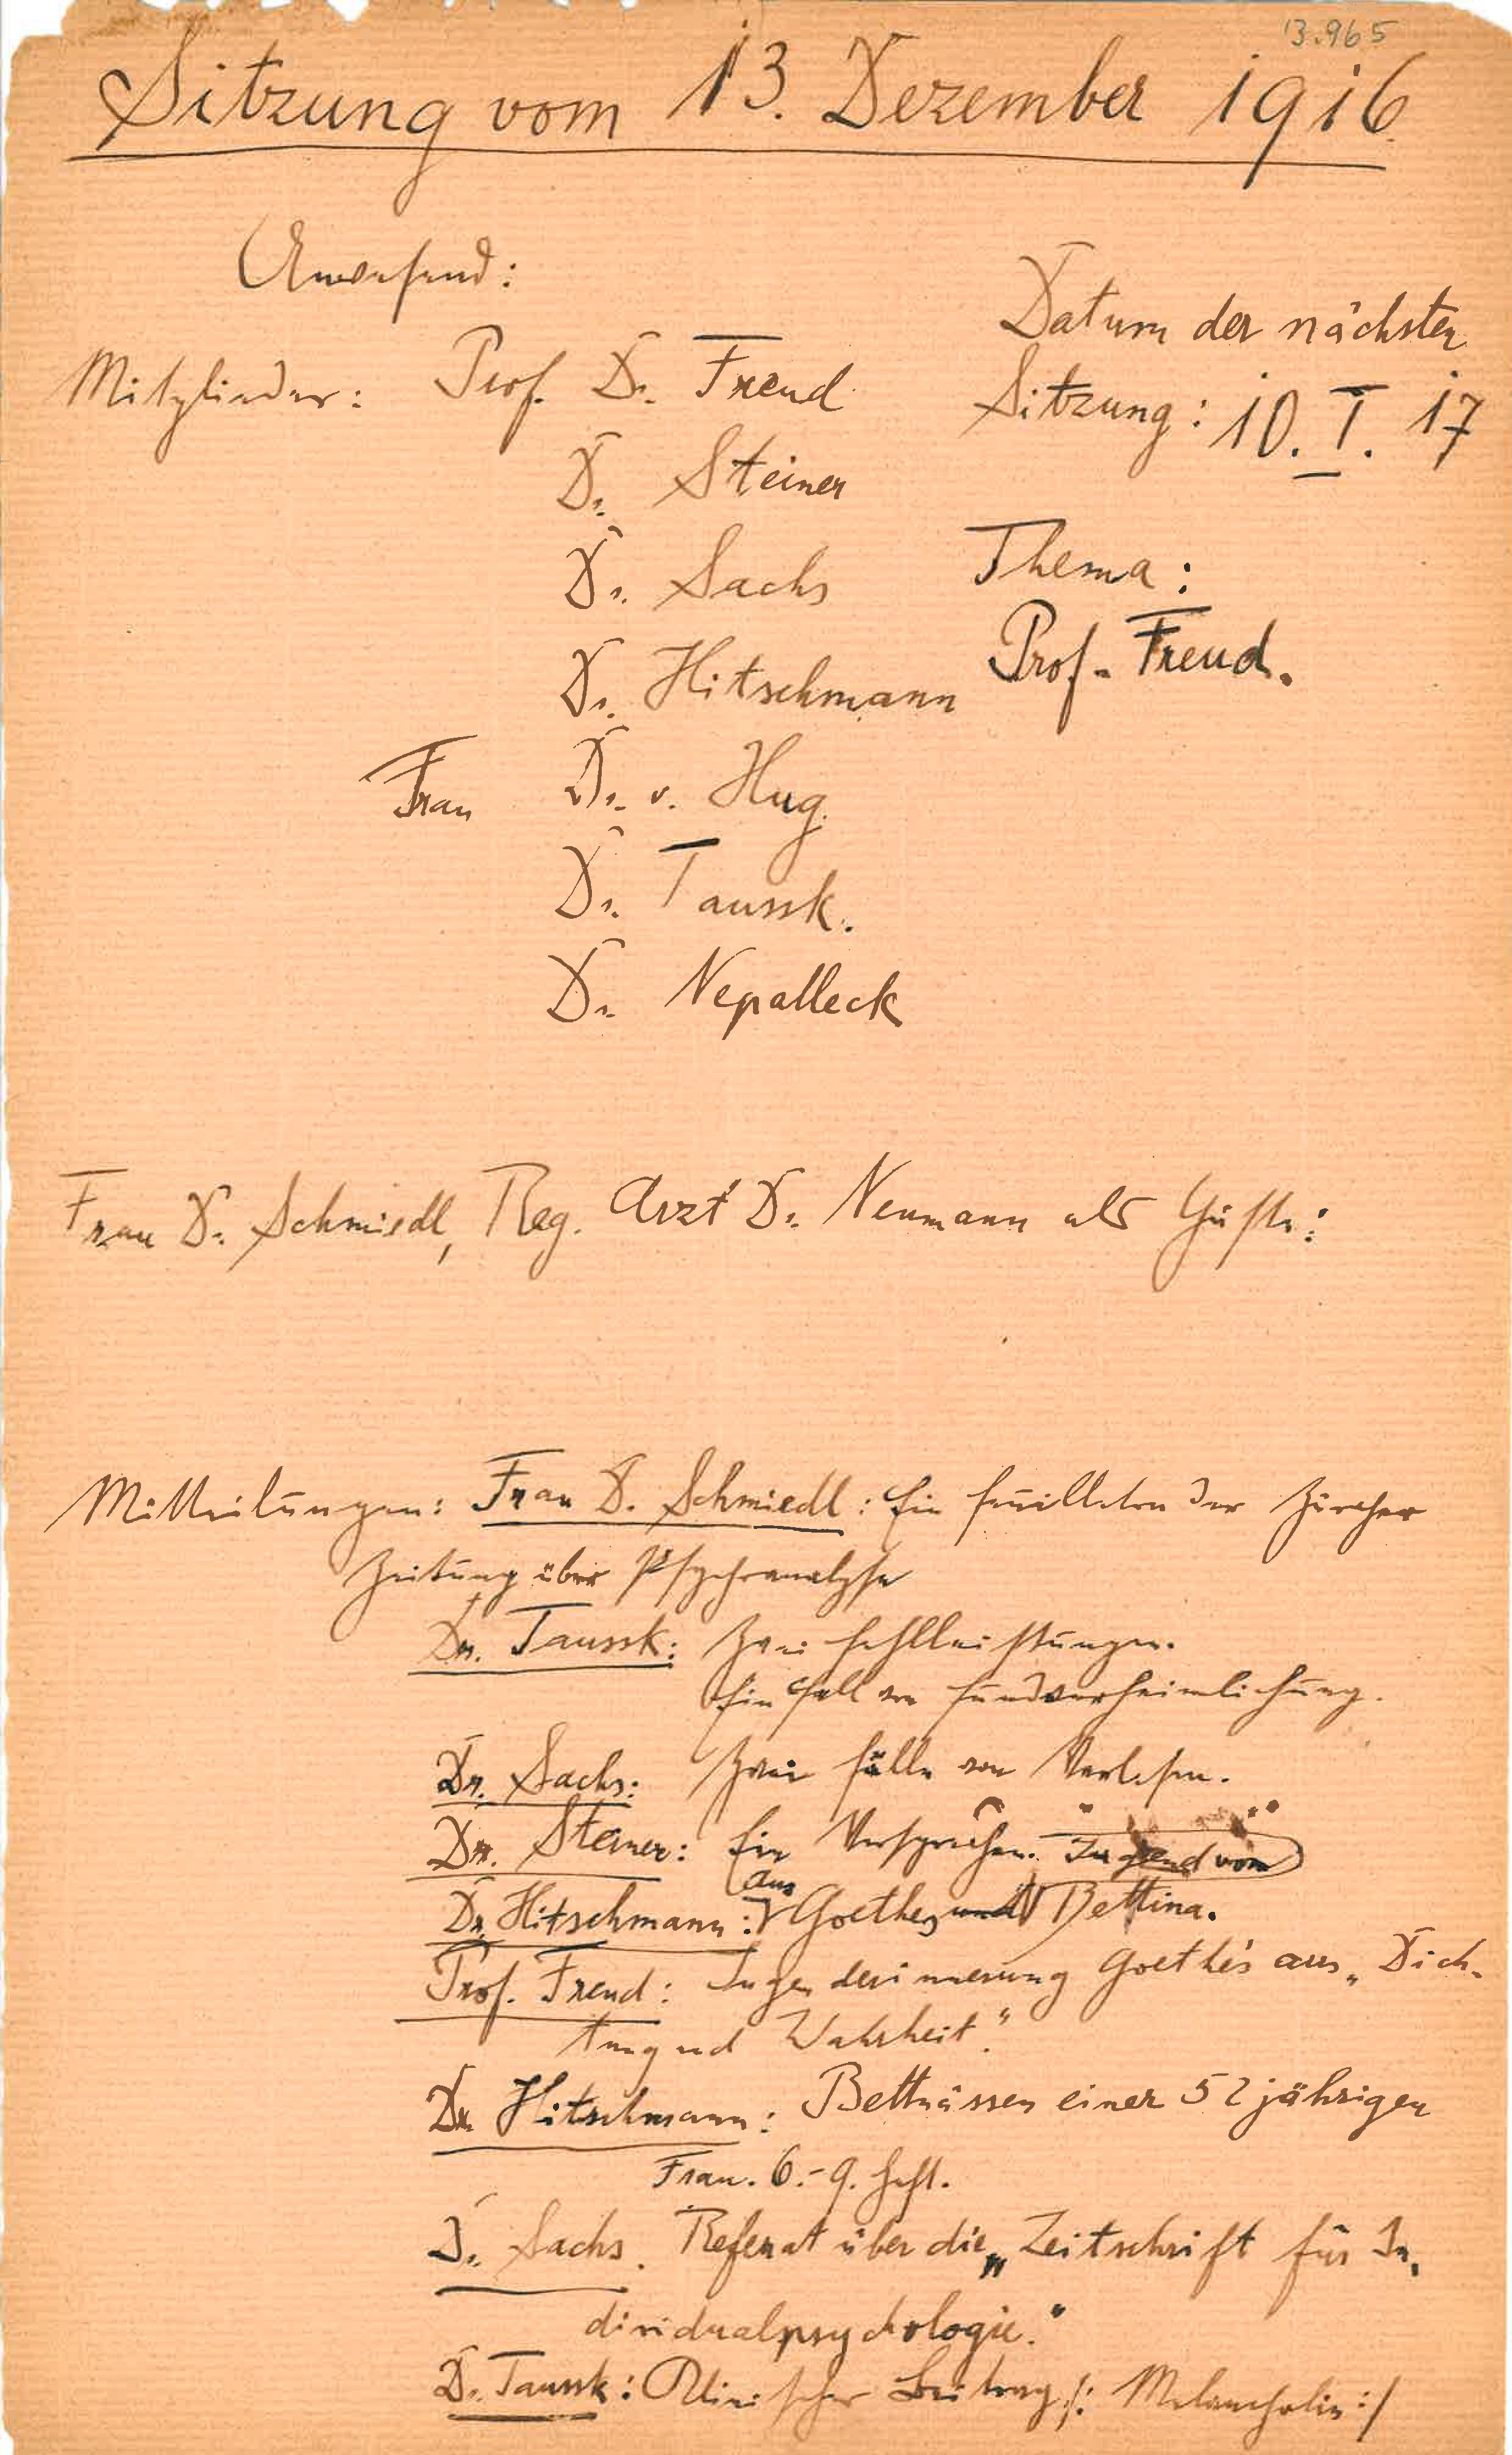 13.965
Sitzung vom 13. Dezember 1916.
Anwesend:
Datum der nächsten
Sitzung: 10. I. 17
Thema:
Prof. Freud.
Mitglieder: Prof. Dr. Freud
Dr. Steiner
Dr. Sachs
Dr. Hitschmann
Frau Dr. v. Hug.
Dr. Taussk.
Dr. Nepalleck
Frau Dr. Schmiedl, Reg. Arzt Dr. Neumann als Gäste:
Mitteilungen: Frau D. Schmiedl: Ein Feuilleton der Züricher
Zeitung über Psychoanalyse
Dr. Taussk: Zwei Fehlleistungen.
Ein Fall von Fundverheimlichung.
Dr. Sachs: Zwei Fälle von Verlesen.
Dr. Steiner: Ein Versprechen. Jugend von
Dr. Hitschmann: aus Goethes und Bettina.
Prof. Freud: Jugenderinnerung Goethe's aus „Dich-
tung und Wahrheit."
Dr. Hitschmann: Bettnässen einer 52 jährigen
Frau. 6.-9. Heft.
D. Sachs. Referat über die „Zeitschrift für In-
dividualpsychologie."
D. Taussk: Klinischer Beitrag /: Melancholie :/